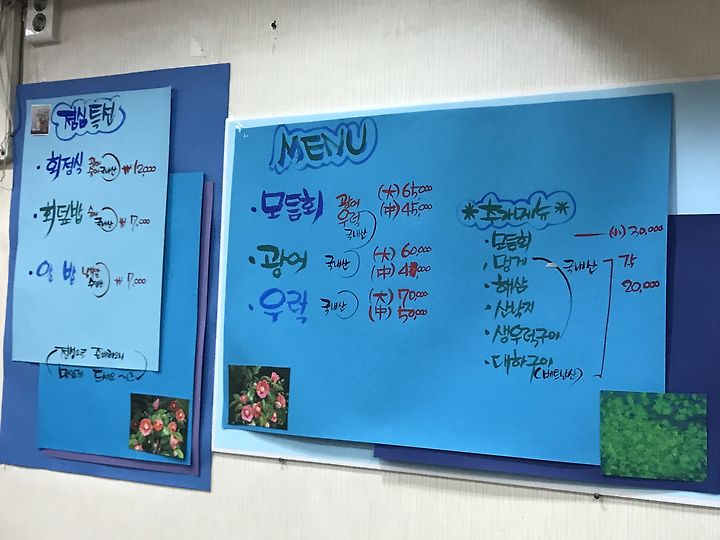 점심특선
회정식 광어 숭어 국내산 ₩12,000
회덮밥 숭어 국내산 ₩7,000
알밥 ₩7,000
정성으로 준비하오니
맛있게 드세요~^^
MENU
모듬회 광어 우럭 국내산 (大) 65,000
(中) 45,000
광어 국내산 (大) 60,000
(中)
우럭 국내산 (大) 70,000
(中) 50,000
*추가메뉴*
모듬회 (小) 30,000
멍게 국내산 각
해삼 20,000
산낙지
생우럭구이
대하구이
(베트남산)